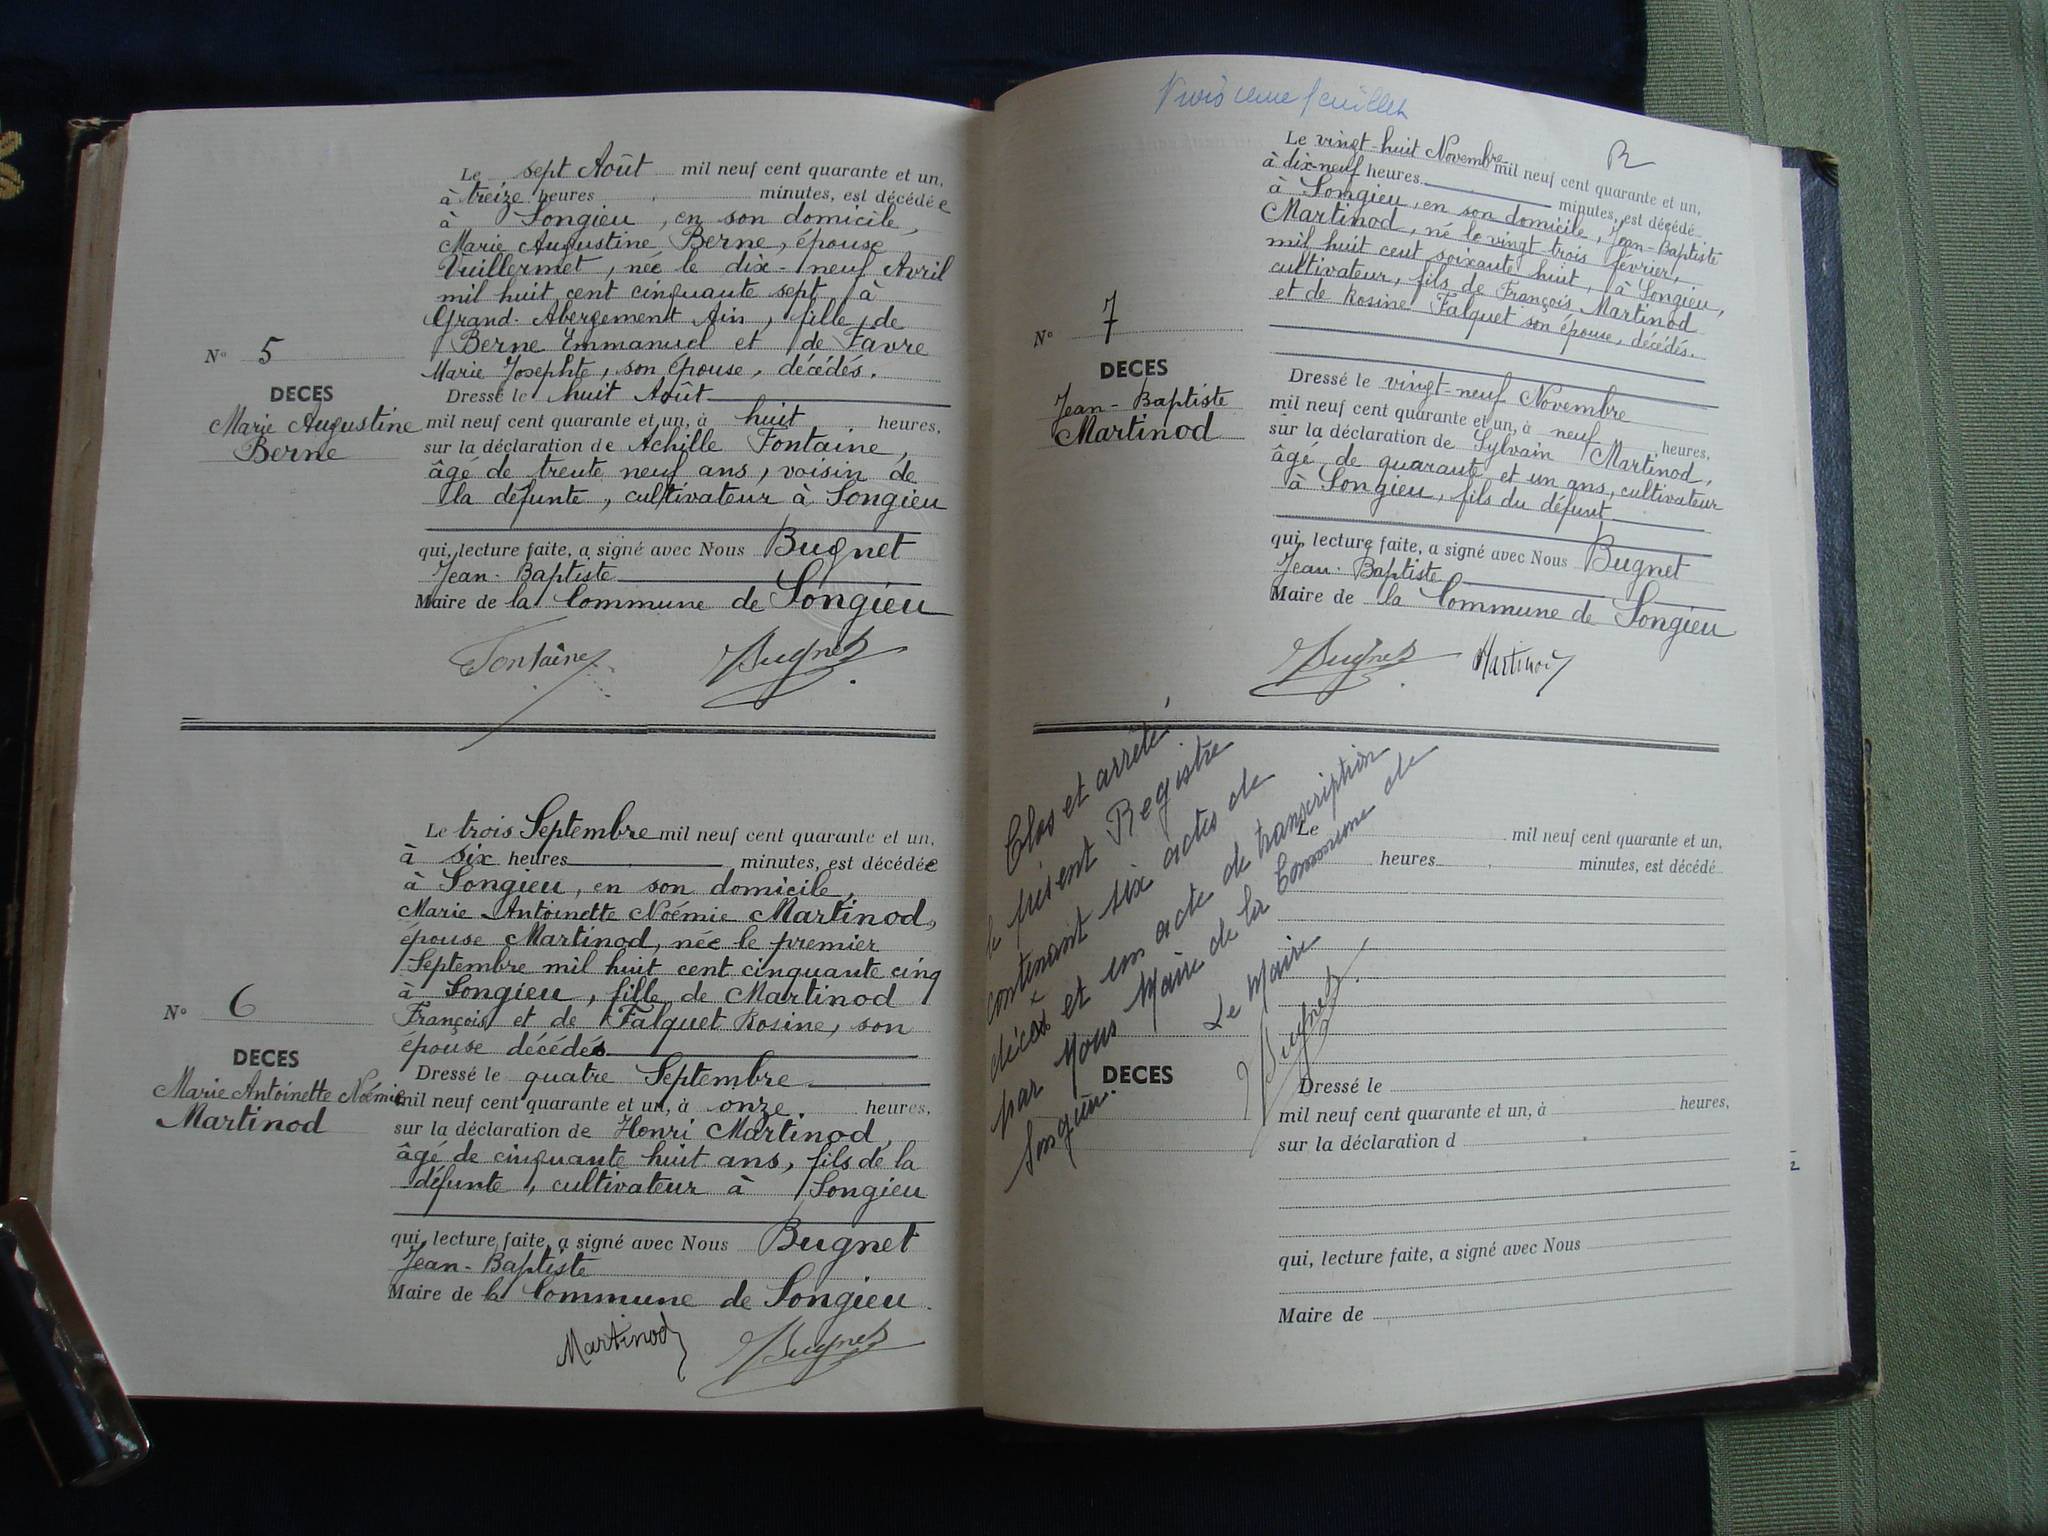 Le sept Août mil neuf cent quarante et un,
à treize heures minutes, est décédée
à Songieu, en son domicile,
Marie Augustine Berne, épouse
Vuillermet, née le dix-neuf Avril
mil huit cent cinquante sept, à
Grand-Abergement Ain, fille de
Berne Emmanuel et de Favre
Marie Josephte, son épouse, décédés.
N° 5
DECES
Marie Augustine
Berne
Dressé le huit Août
mil neuf cent quarante et un, à huit heures,
sur la déclaration de Achille Fontaine,
âgé de trente neuf ans, voisin de
la défunte, cultivateur à Songieu
qui, lecture faite, a signé avec Nous Bugnet
Jean-Baptiste
Maire de la Commune de Songieu
Fontaine Bugnet
Le trois Septembre mil neuf cent quarante et un,
à six heures minutes, est décédée
à Songieu, en son domicile,
Marie Antoinette Noémie Martinod,
épouse Martinod, née le premier
Septembre mil huit cent cinquante cinq
à Songieu, fille de Martinod
François et de Falquet Rosine, son
épouse décédés
N° 6
DECES
Marie Antoinette Noémie
Martinod
Dressé le quatre Septembre
mil neuf cent quarante et un, à onze heures,
sur la déclaration de Henri Martinod,
âgé de cinquante huit ans, fils de la
défunte, cultivateur à Songieu
qui, lecture faite, a signé avec Nous Bugnet
Jean-Baptiste
Maire de la Commune de Songieu.
Martinod Bugnet
feuillet
Le vingt-huit Novembre mil neuf cent quarante et un,
à dix-neuf heures minutes, est décédé
à Songieu, en son domicile, Jean-Baptiste
Martinod, né le vingt-trois février,
mil huit cent soixante huit, à Songieu,
cultivateur, fils de François Martinod
et de Rosine Falquet son épouse, décédés.
N° 7
DECES
Jean-Baptiste
Martinod
Dressé le vingt-neuf Novembre
mil neuf cent quarante et un, à neuf heures,
sur la déclaration de Sylvain Martinod,
âgé de quarante et un ans, cultivateur
à Songieu, fils du défunt
qui, lecture faite, a signé avec Nous Bugnet
Jean-Baptiste
Maire de la Commune de Songieu
Bugnet Martinod
Clos et arrêté
le présent Registre
contenant six actes de
décès et un acte de transcription
par Nous Maire de la Commune de
Songieu.
Le Maire
Bugnet
Le mil neuf cent quarante et un,
heures minutes, est décédé
DECES
Dressé le
mil neuf cent quarante et un, à heures,
sur la déclaration d
qui, lecture faite, a signé avec Nous
Maire de